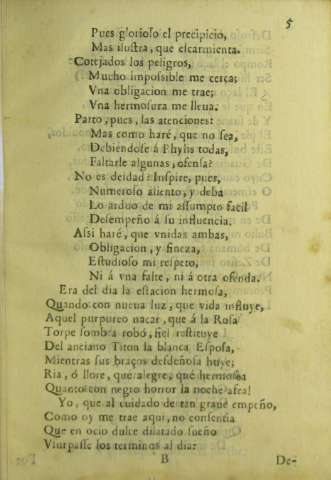 5
Pues glorioso el precipicio,
Mas ilustra, que escarmienta.
Cotejados los peligros,
Mucho impossible me cerca;
Vna obligacion me trae;
Vna hermosura me lleua.
Parto, pues, las atenciones:
Mas como haré, que no sea,
Debiendose á Phylis todas,
Faltarle algunas, ofensa?
No es deidad? Inspire, pues,
Numeroso aliento, y deba
Lo arduo de mi assumpto facil
Desempeño á su influencia.
Assi haré, que vnidas ambas,
Obligacion, y fineza,
Estudioso mi respeto,
Ni á vna falte, ni á otra ofenda.
Era del dia la estacion hermosa,
Quando con nueua luz, que vida influye,
Aquel purpureo nacar, que á la Rosa
Torpe sombra robó, fiel restituye
Del anciano Titon la blanca Esposa,
Mientras sus braços desdeñosa huye;
Ria, ó llore, que alegre, que hermosea
Quanto con negro horror la noche afea!
Yo, que al cuidado de tan graue empeño,
Como oy me trae aqui, no consentia
Que en ocio dulce dilatado sueño
Vsurpasse los terminos al dia:
B De-